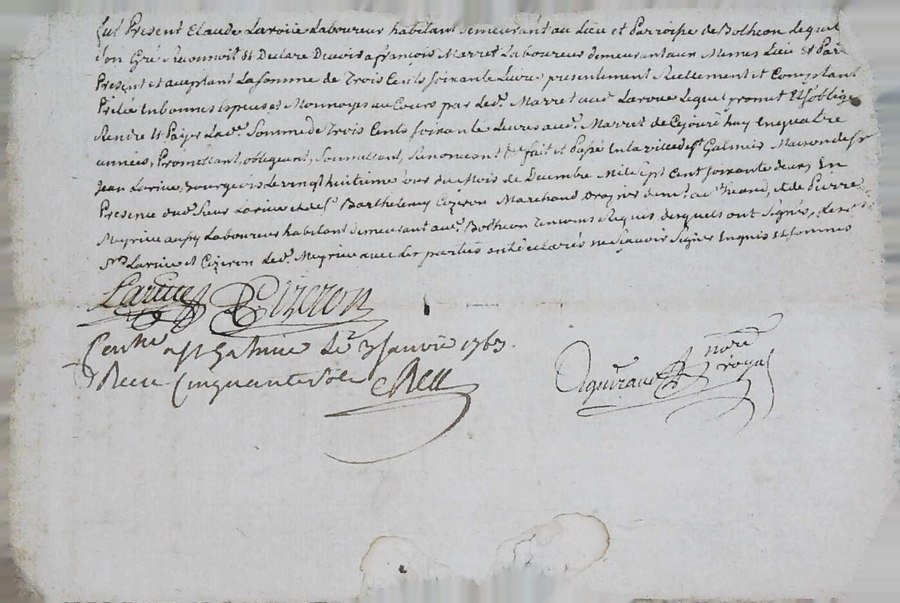 fut Present Claude Laroüe Laboureur habitant demeurant au Lieu et Parroisse de Botheon Lequel
Son Gré Reconnoit et Declare Devoir a françois Marret Laboureur demeurant aux Mêmes Lieu et Par
Present et aceptant La somme de Trois Cents soixante Livres presentement Reellement et Comptant
Prêtée en bonnes Espeuses Monnoyes au Cours par Led. Marret aud. Laroue Lequel promet Et s'oblige
Rendre et Payer Lad. Somme de Trois Cents soixante Livres aud. Marret de Cejourd'huy en quatre
années, Promettant, obligeant, Soumettant, Renoncant &a fait et Passé En la ville de St Galmier Maison de Sr
Jean Larive, Bourgeois Le vingt huitieme jour du Mois de Decembre Mil Sept Cent soixante deux, En
Presence dud. Sieur Larive et de Sr Barthelemy Cizeron Marchand Drapier demt au St et de Pierre
Meyrieu aussy Laboureur habitant demeurant aud. Botheon Temoins Requis desquels ont Signés, Les
Srs Larive et Cizeron Led. Meyrieu avec les parties ont déclarés ne Sçavoir Signer Enquis et sommés
Larive Cizeron
Conlle a St Galmier Le 3 Janvier 1763.
Receu Cinquante Sols
nore
royal